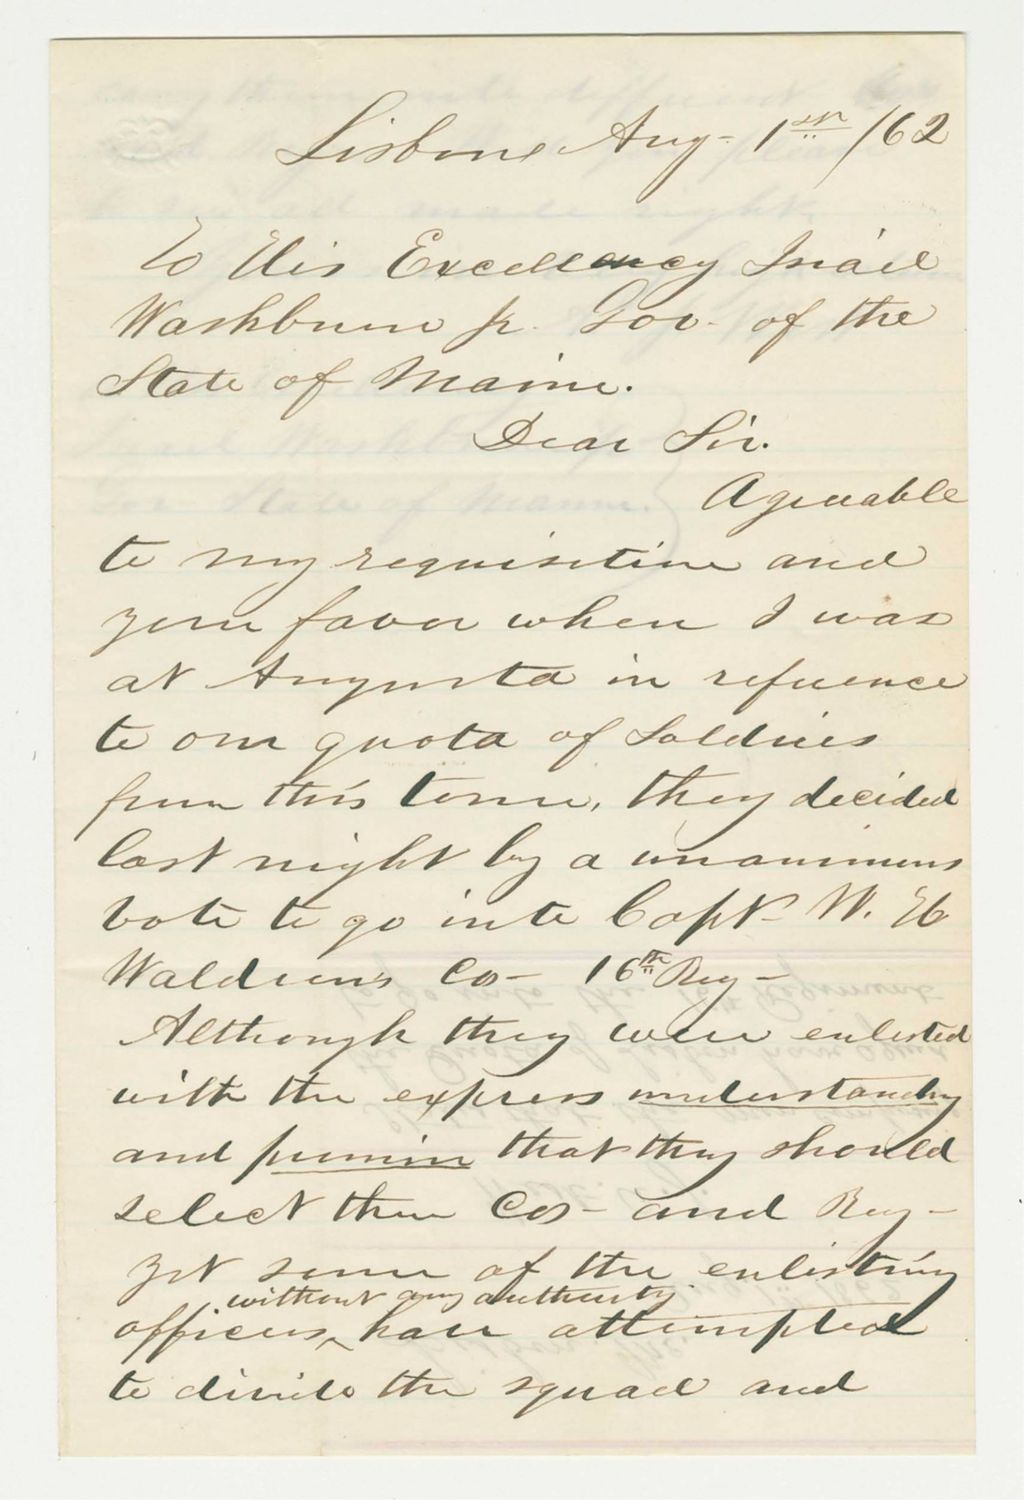 Lisbon Aug- 1st /62
To His Excellency Isa'el
Washburn jr. Gov. of the
State of Maine.
Dear Sir.
Agreeable
to my requisition and
your favor when I was
at Augusta in reference
to our quota of Soldiers
from this town, they decided
last night by a unanimous
vote to go into Capt- W. H
Waldron's Co- 16th Reg-
Although they were enlisted
with the express understanding
and promise that they should
select their Co- and Reg-
yet some of the enlisting
without any authority
officers, ^ have attempted
to divide the squad and